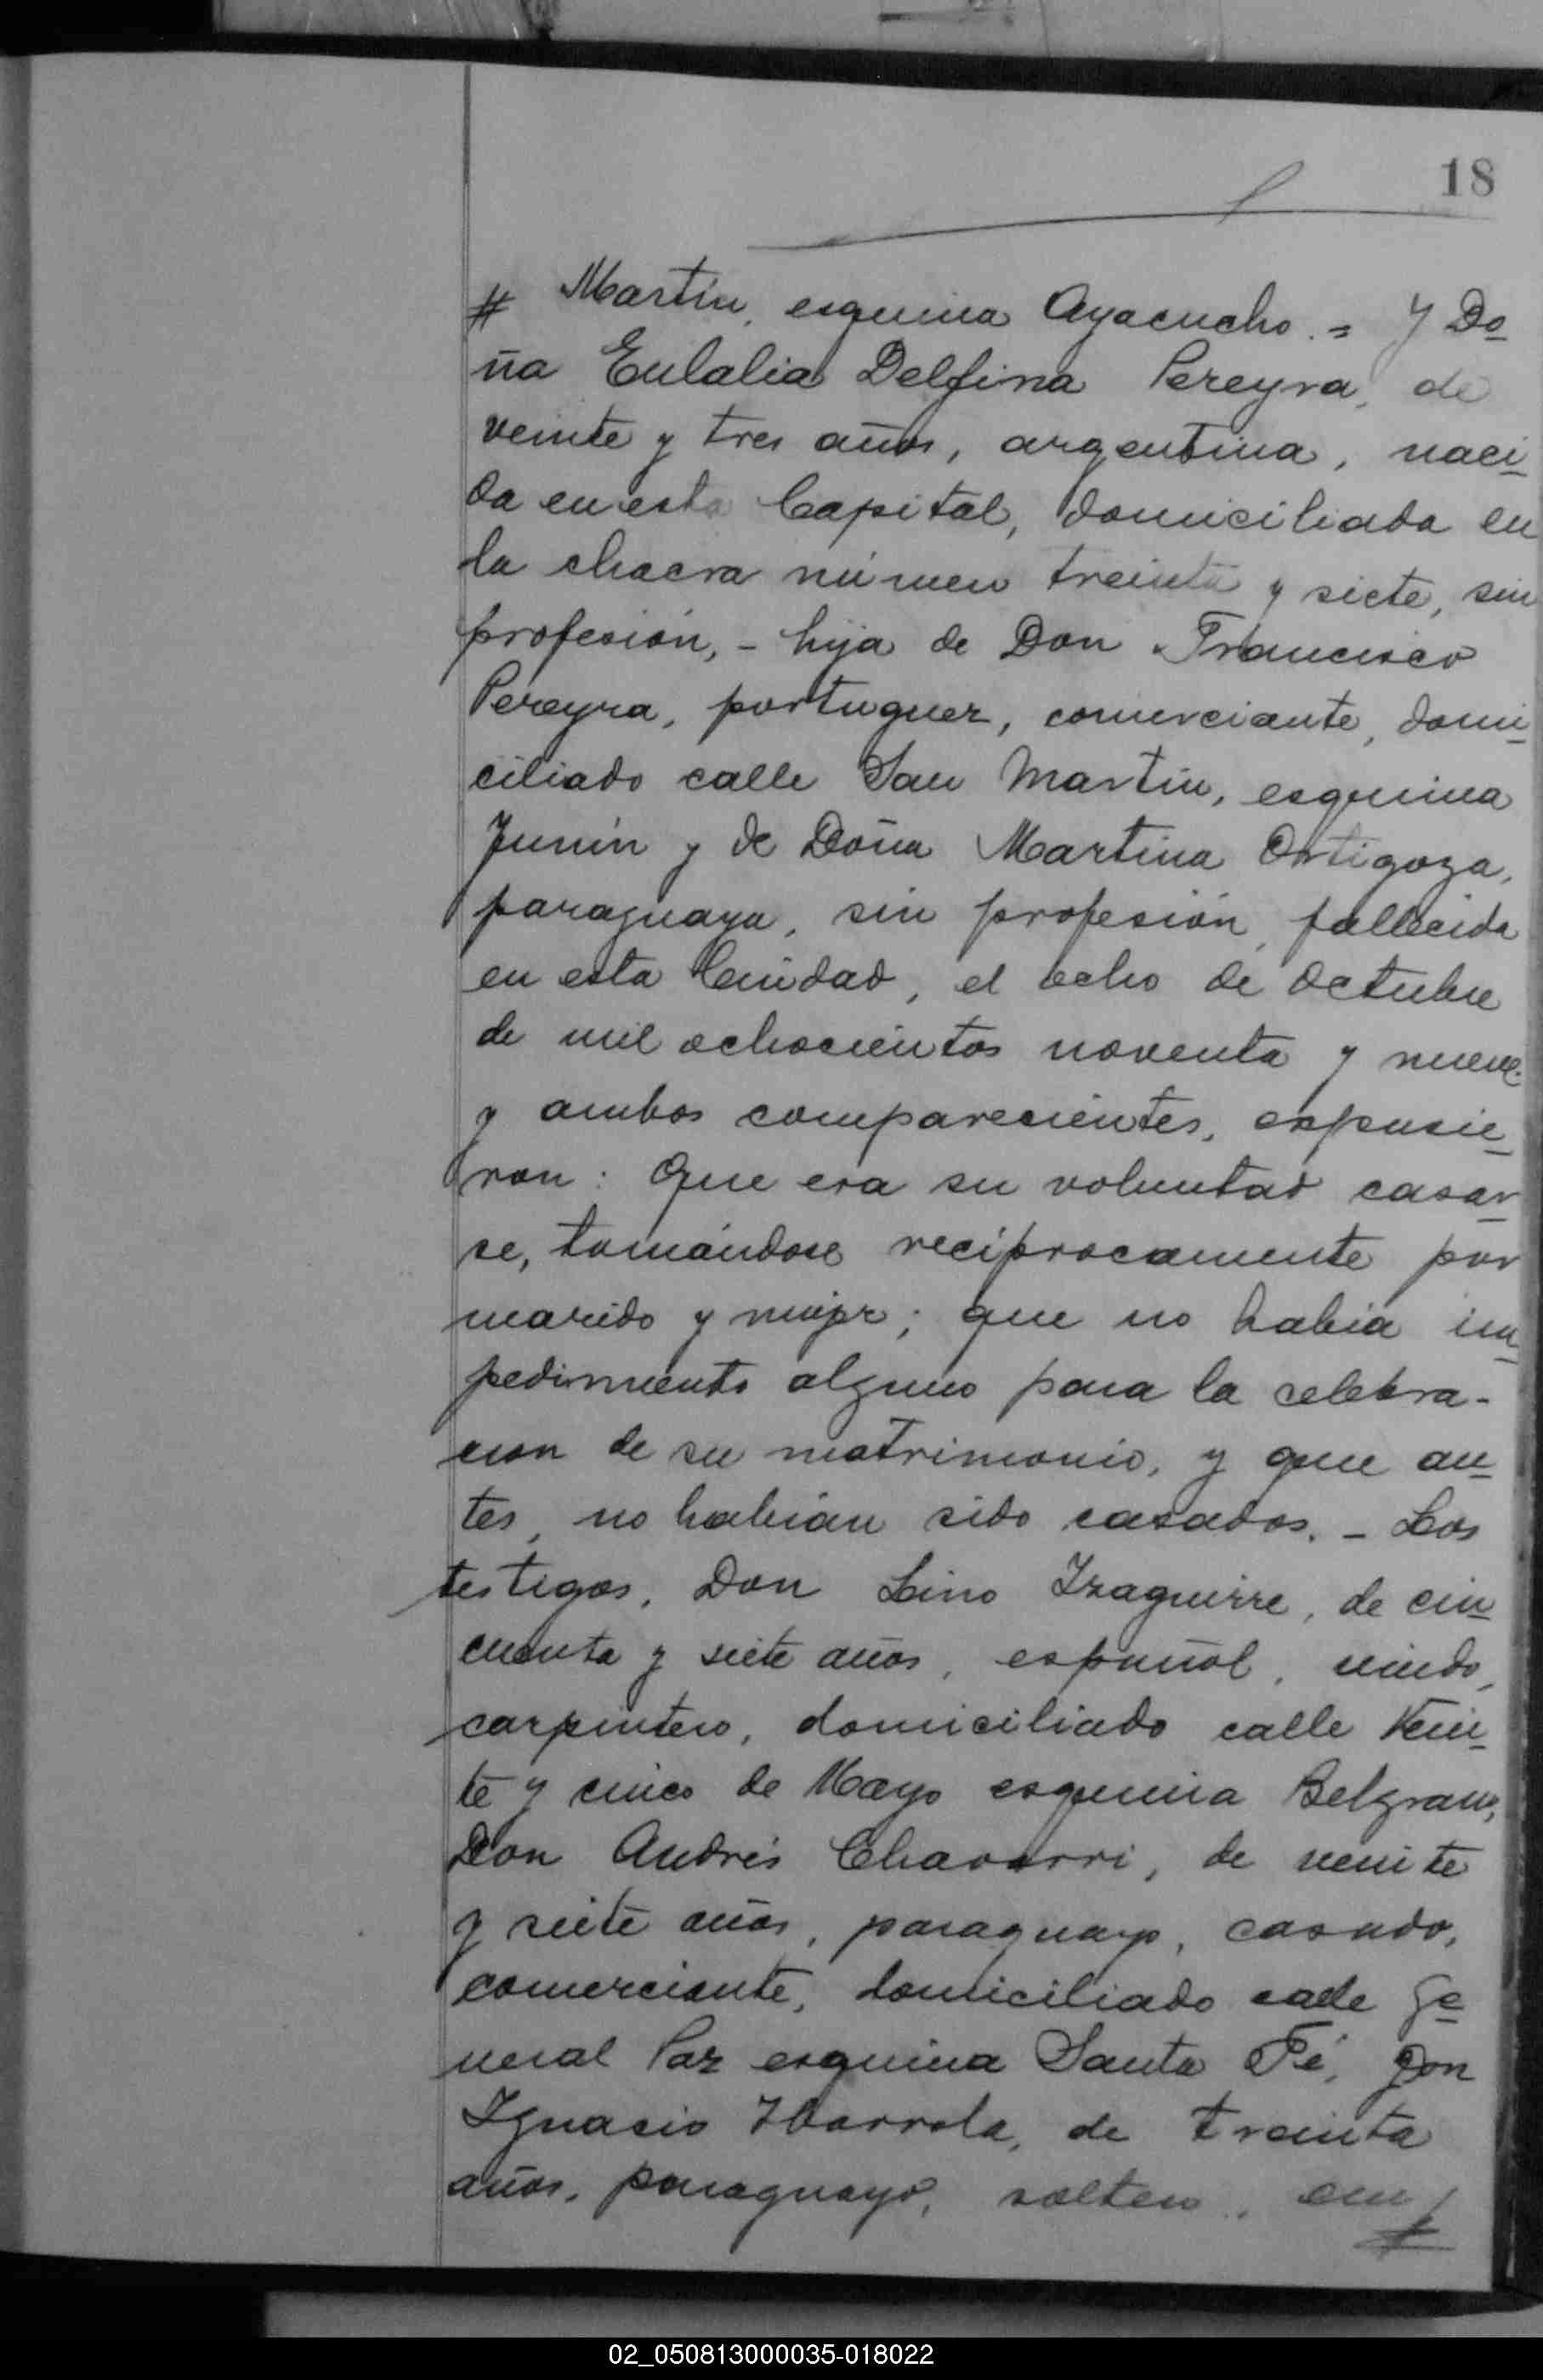 18
# Martín, esquina Ayacucho. = Y Do
ña Eulalia Delfina Pereyra, de
veinte y tres años, argentina, naci
da en esta Capital, domiciliada en
la chacra número treinta y siete, sin
profesión, - hija de Don Francisco
Pereyra, portuguez, comerciante, domi
ciliado calle San Martín, esquina
Junín y de Doña Martina Ortigoza,
paraguaya, sin profesión, fallecida
en esta Ciudad, el ocho de Octubre
de mil ochocientos noventa y nueve.
y ambos comparecientes, expusie
ron: Que era su voluntad casar
se, tomándose recíprocamente por
marido y mujer; que no había im
pedimento alguno para la celebra-
cion de su matrimonio, y que an
tes, no habían sido casados. - Los
testigos, Don Lino Izaguirre, de cin
cuenta y siete años, español, viudo,
carpintero, domiciliado calle Vein
te y cinco de Mayo esquina Belgrano,
Don Andrés Chavarri, de veinte
y siete años, paraguayo, casado,
comerciante, domiciliado calle Ge
neral Paz esquina Santa Fé, Don
Ignacio Ibarrola, de treinta
años, paraguayo, soltero, em
#
02_050813000035-018022